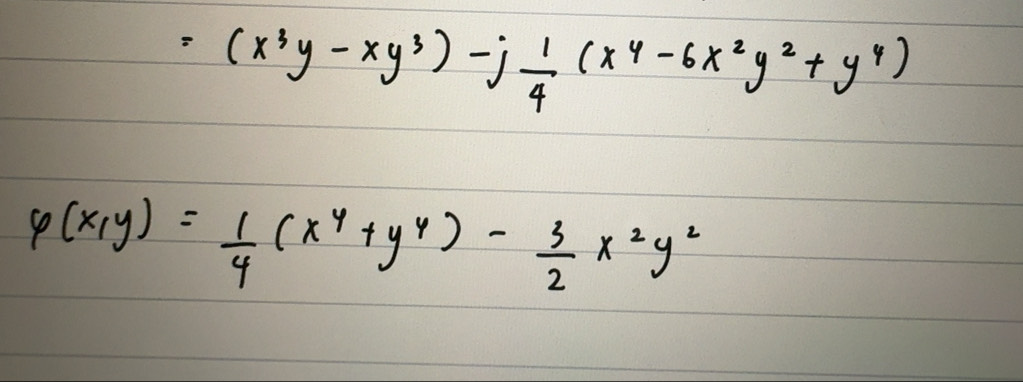 = (x³y - xy³) - j 1/4 (x⁴ - 6x²y² + y⁴)
φ(x,y) = 1/4 (x⁴ + y⁴) - 3/2 x²y²